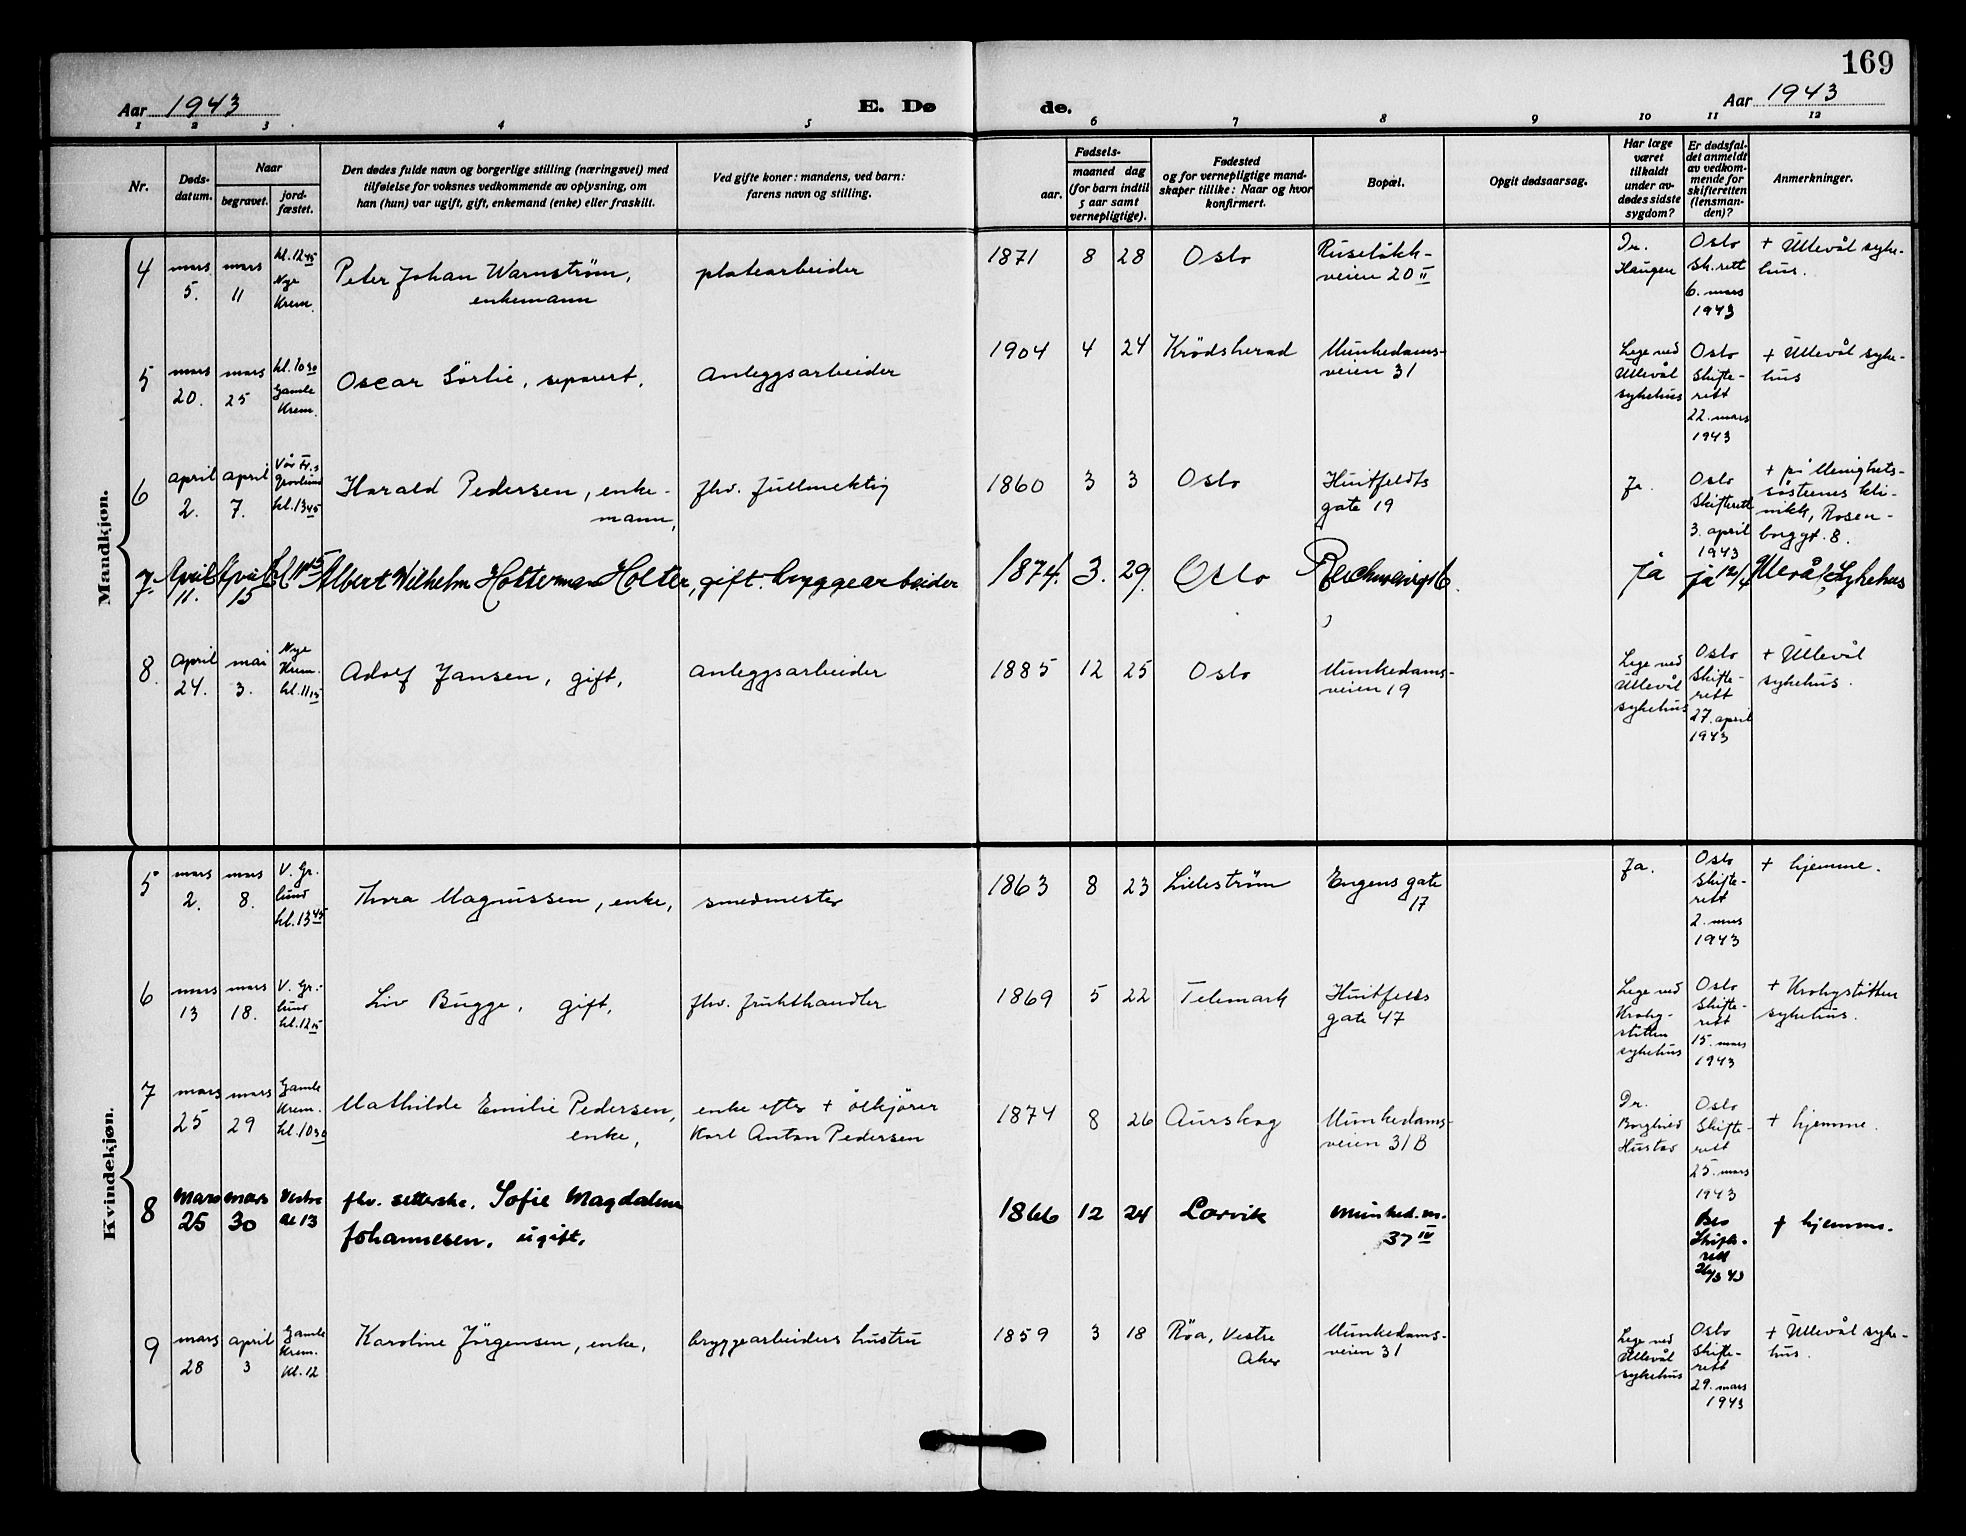 169
Aar 1943
E. Dø
de.
Aar 1943
1 2 3 4 5 6 7 8 9 10 11 12
Nr.
Døds-
datum.
Naar
begravet.
jord-
fæstet.
Den dødes fulde navn og borgerlige stilling (næringsvei) med
tilføielse for voksnes vedkommende av oplysning, om
han (hun) var ugift, gift, enkemand (enke) eller fraskilt.
Ved gifte koner: mandens, ved barn:
farens navn og stilling.
Fødsels-
aar.
maaned dag
(for barn indtil
5 aar samt
vernepligtige).
Fødested
og for vernepligtige mand-
skaper tillike: Naar og hvor
konfirmert.
Bopæl.
Opgit dødsaarsag.
Har læge
været
tilkaldt
under av-
dødes sidste
sygdom?
Er dødsfal-
det anmeldt
av vedkom-
mende for
skifteretten
(lensman-
den)?
Anmerkninger.
Mandkjøn.
4
mars
5.
mars
11
kl. 12 45
Nye
Krem.
Peter Johan Warnstrøm,
enkemann
platearbeider
1871
8
28
Oslo
Ruseløkk-
veien 20 II
Dr.
Haugen
Oslo
sk.rett
6. mars
1943
+ Ullevål syke-
hus.
5
mars
20.
mars
25
kl. 10 30
Gamle
Krem.
Oscar Sörlie, separert,
Anleggsarbeider
1904
4
24
Krödsherad
Munkedams-
veien 31
Lege ved
Ullevål
sykehus
Oslo
Skifte-
rett
22. mars
1943
+ Ullevål syke-
hus
6
april
2.
april
7.
Vår Fr.s
Gravlund
kl. 13 45
Harald Pedersen, enke-
mann,
fhv. fullmektig
1860
3
3
Oslo
Huitfeldts
gate 19
Ja.
Oslo
Skifterett
3. april
1943
+ på Menighets-
söstrenes kli-
nikk, Rosen-
borggt. 8.
7.
April
11.
April
15
Albert Wilhelm Holterman Holter, gift. bryggearbeider
1874.
3.
29.
Oslo
ja
ja 12/4
Ullevål Sykehus
8.
April
24.
mai
3.
Nye
Krem.
kl. 11 15
Adolf Jansen, gift,
Anleggsarbeider
1885
12
25
Oslo
Munkedams-
veien 19
Lege ved
Ullevål
sykehus
Oslo
Skifte-
rett
27. april
1943
+ Ullevål
sykehus.
Kvindekjøn.
5
mars
2.
mars
8.
V. Gr.
lund
kl. 13 45
Thora Magnussen, enke,
smedmester
1863
8
23
Lilleström
Engens gate
17
Ja.
Oslo
Skifte-
rett
2. mars
1943
+ hjemme.
6
mars
13
mars
18.
V. Gr.-
lund
kl. 12 15
Liv Bugge, gift,
fhv. frukthandler
1869
5
22
Telemark
Huitfelds
gate 47
Lege ved
Krohg-
stötten
sykehus
Oslo
Skifte-
rett
15. mars
1943
+ Krohgstötten
sykehus.
7
mars
25
mars
29
Gamle
Krem.
kl. 10 30
Mathilde Emilie Pedersen,
enke,
enke efter + ölkjörer
Karl Anton Pedersen
1874
8
26
Aurskog
Munkedams-
veien 31 B
Dr.
Hustad
Oslo
Skifte-
rett
25. mars
1943
+ hjemme.
8
mars
25
mars
30
Vestre
kl 13
fhv. setterske. Sofie Magdalene
Johannesen, ugift,
1866
12
24
Larvik
Munked.-v.
37 IV
Oslo
Skifte-
rett
+ hjemme.
9
mars
28
april
3
Gamle
Krem.
kl. 12
Karoline Jörgensen, enke,
bryggearbeiders hustru
1859
3
18
Röa, Vestre
Aker
Munkedams-
veien 31
Lege ved
Ullevål
sykehus
Oslo
Skifte-
rett
29. mars
1943
+ Ullevål syke-
hus.